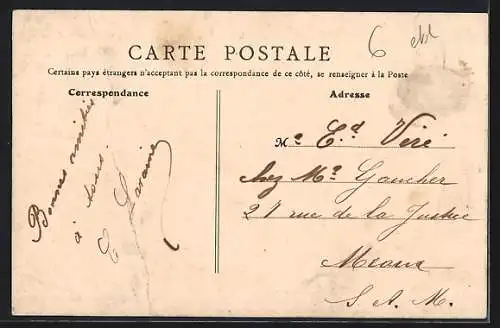 6 ebl
CARTE POSTALE
Certains pays étrangers n'acceptant pas la correspondance de ce côté, se renseigner à la Poste
Correspondance
Bonnes amitiés
à tous.
E. Lavaine
Adresse
Mr Ed Viré
chez Mr Gaucher
21 rue de la Justice
Meaux
S. &. M.